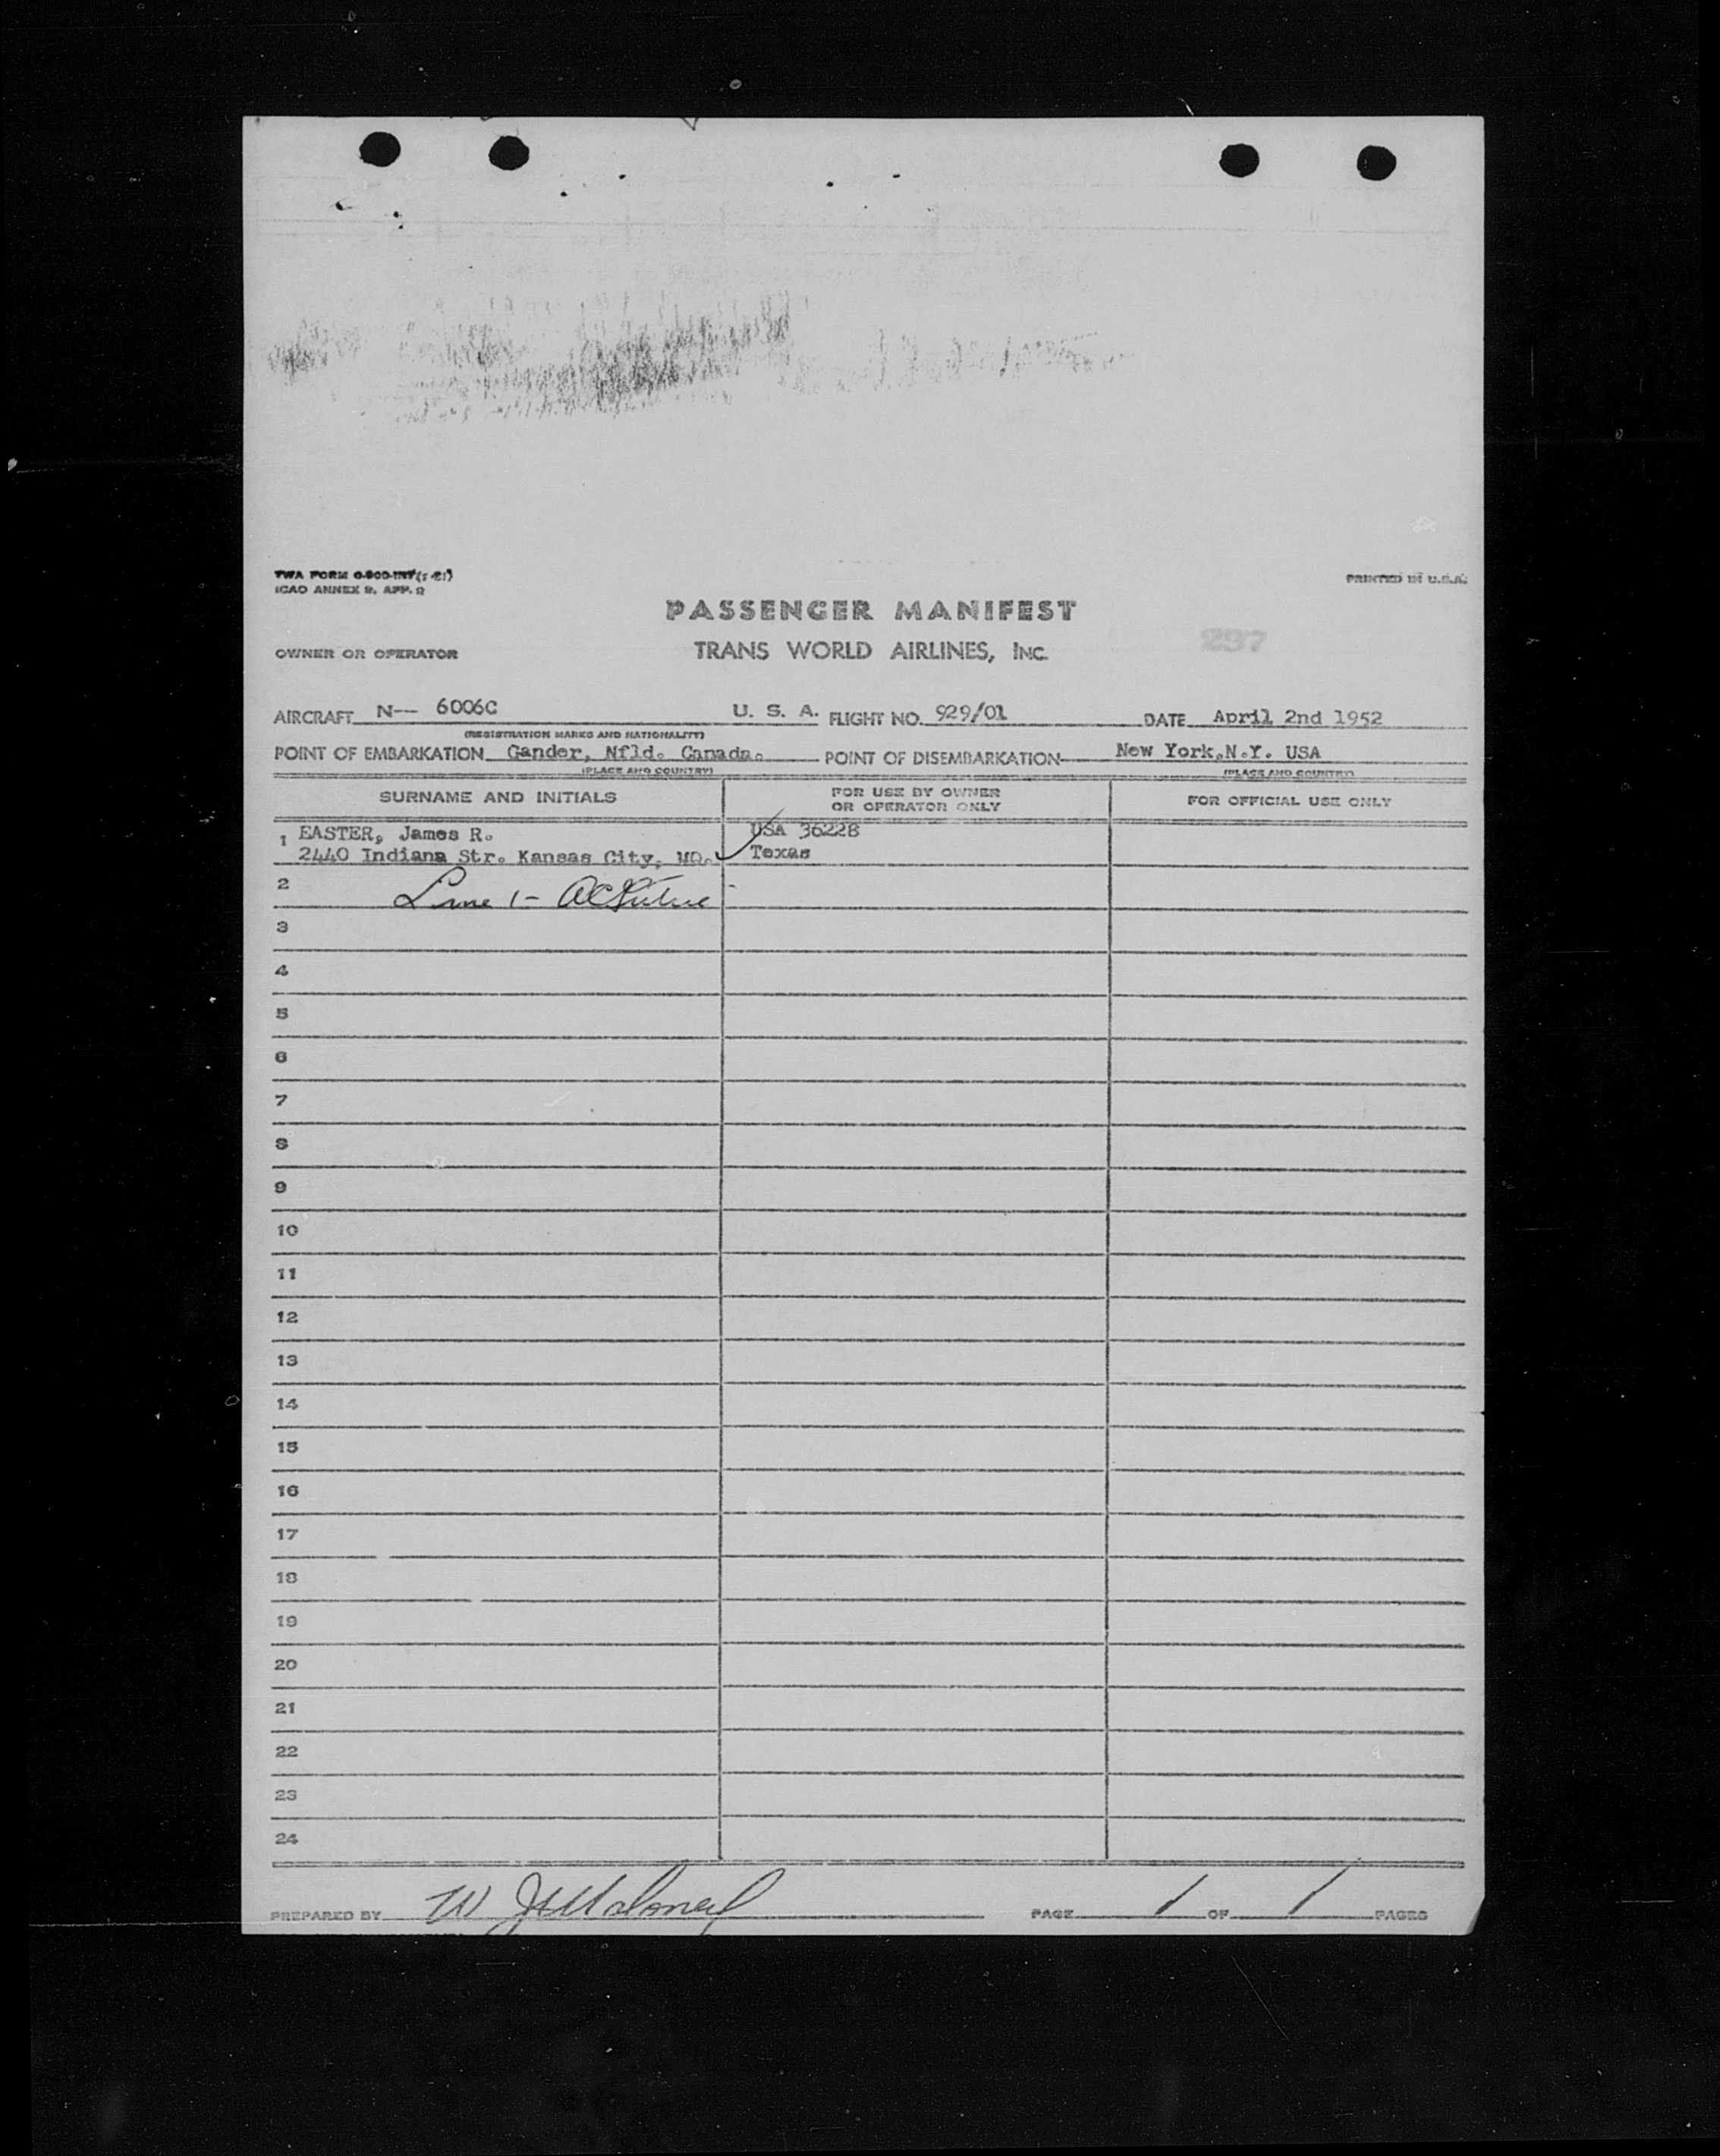 TWA FORM
ICAO ANNEX 9, APP. 2
PRINTED IN U.S.A.
PASSENGER MANIFEST
297
OWNER OR OPERATOR TRANS WORLD AIRLINES, INC.
AIRCRAFT N-- 6006C U. S. A. FLIGHT NO. 929/01 DATE April 2nd 1952
(REGISTRATION MARKS AND NATIONALITY)
POINT OF EMBARKATION Gander, Nfld. Canada. POINT OF DISEMBARKATION New York,N.Y. USA
(PLACE AND COUNTRY) (PLACE AND COUNTRY)
SURNAME AND INITIALS FOR USE BY OWNER OR OPERATOR ONLY FOR OFFICIAL USE ONLY
1 EASTER, James R. USA 36228
2440 Indiana Str. Kansas City, MO. Texas
2 Line 1-
3
4
5
6
7
8
9
10
11
12
13
14
15
16
17
18
19
20
21
22
23
24
PREPARED BY W PAGE 1 OF 1 PAGES